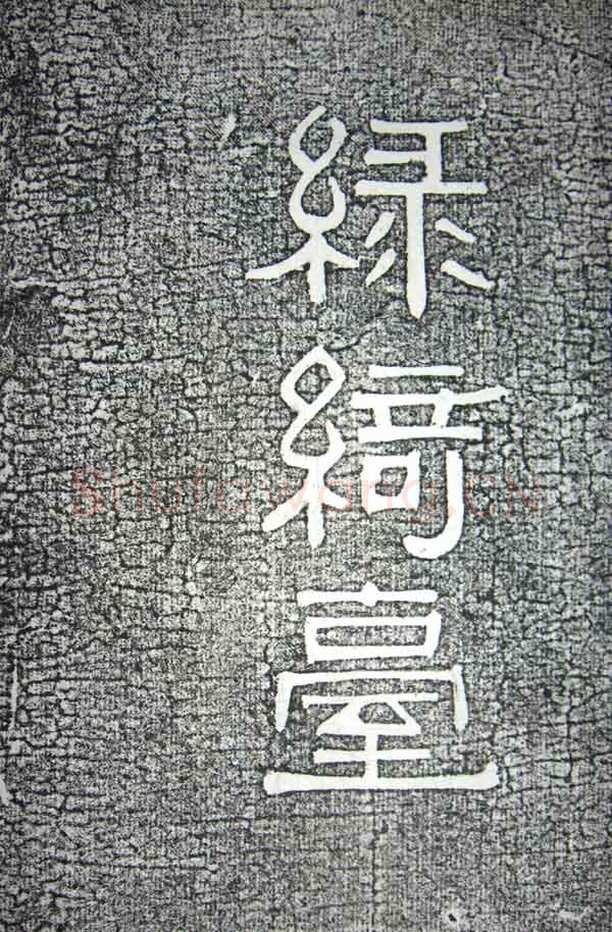 綠綺臺
Shufawang.CN